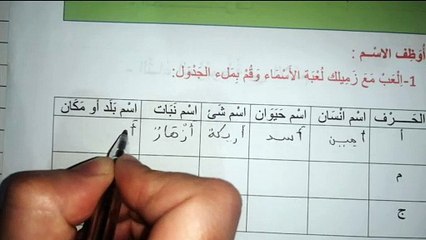 أُوَظِّف الاسْـم :
1-اِلْعَبْ مَعَ زَمِيلِك لُعْبَةَ الأَسْمَاء وَقُمْ بِمَلءِ الجَدْوَل:
الحَرْف اسْم انْسَان اسْم حَيَوَان اسْم شَيْ اسْم نَبَات اسْم بَلَد أو مَكَان
أ أمين أسد أريكة أزهار أ
م
ج